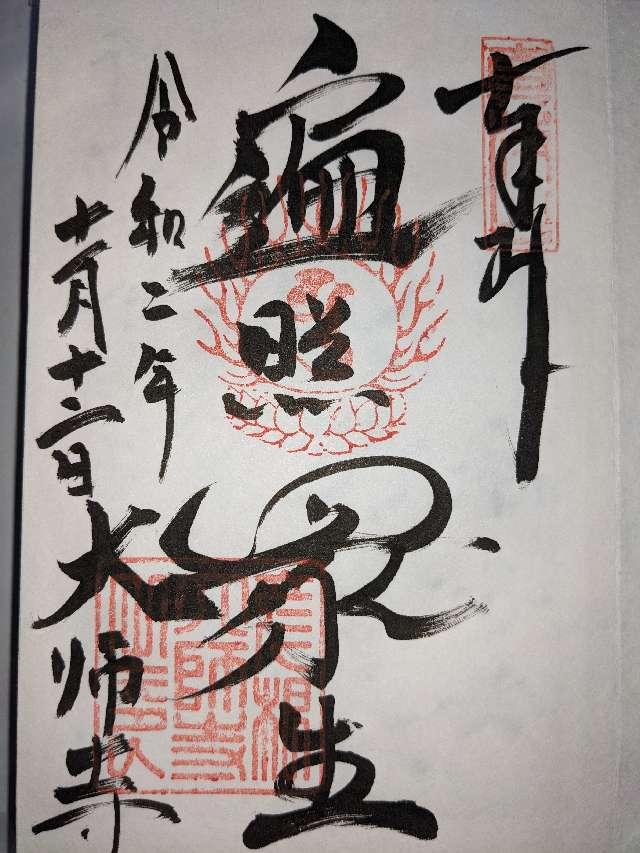 奉拝
遍照衆生
令和二年
十一月十二日 大師寺